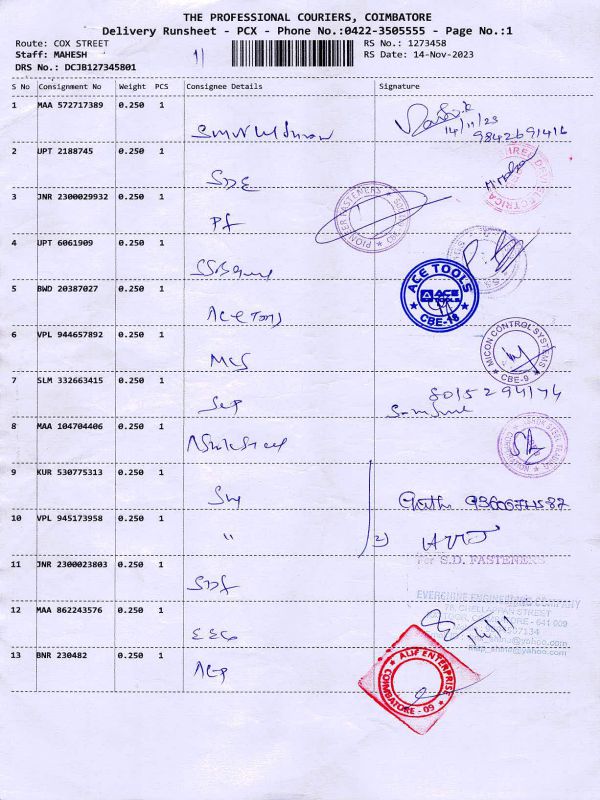 THE PROFESSIONAL COURIERS, COIMBATORE
Delivery Runsheet - PCX - Phone No.:0422-3505555 - Page No.:1
Route: COX STREET
RS No.: 1273458
Staff: MAHESH
11
RS Date: 14-Nov-2023
DRS No.: DCJB127345801
S No Consignment No Weight PCS Consignee Details Signature
1 MAA 572717389 0.250 1
14/11/23
9842691416
2 UPT 2188745 0.250 1
SDE
3 JNR 2300029932 0.250 1
PIONEER FASTENERS
Pf
4 UPT 6061909 0.250 1
5 BWD 20387027 0.250 1
ACE TOOLS
ACE TOOLS
CBE-18
Ace Tools
6 VPL 944657892 0.250 1
MICON CONTROL SYSTEMS
CBE-9
MCS
7 SLM 332663415 0.250 1
8015294174
8 MAA 104704406 0.250 1
9 KUR 530775313 0.250 1
10 VPL 945173958 0.250 1
"
2)
11 JNR 2300023803 0.250 1
For S.D. FASTENERS
SDf
EVERSHINE ENGINEERING COMPANY
12 MAA 862243576 0.250 1
EEC
14/11
13 BNR 230482 0.250 1
ALIF ENTERPRISE
COIMBATORE - 09
AEP